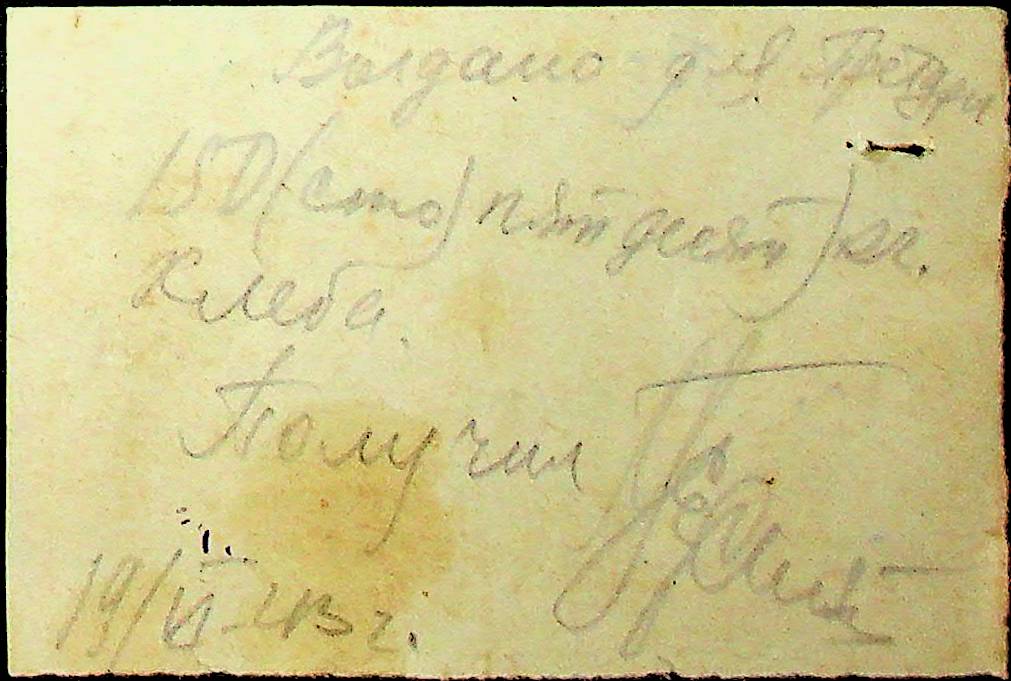 Выдано для
150 (сто) пятдесят) кг.
хлеба.
Получил
19/VI-43 г.